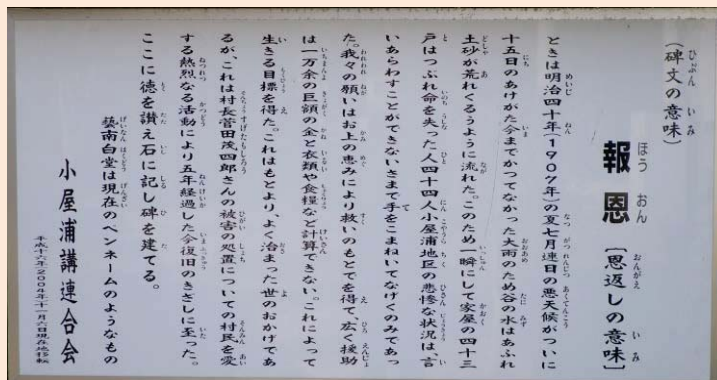 (碑文の意味)
報恩 [恩返しの意味]
ときは明治四十年(1907年)の夏七月連日の悪天候がついに
十五日のあけがた今までかつてなかった大雨のため谷の水はあふれ
土砂が荒れくるうように流れた。このため一瞬にして家屋の四十三
戸はつぶれ命を失った人四十四人小屋浦地区の悲惨な状況は、言
いあらわすことができないさまで手をこまねいてなげくのみであっ
た。我々の願いはお上の恵みにより救いのもとでを得て、広く援助
は一万余の巨額の金と衣類や食糧など計算できない。これによって
生きる目標を得た。これはもとより、よく治まった世のおかげであ
るが、これは村長菅田茂四郎さんの被害の処置についての村民を愛
する熱烈なる活動により五年経過した今復旧のきざしに至った。
ここに徳を讃え石に記し碑を建てる。
藝南白堂は現在のペンネームのようなもの
小屋浦講連合会
平成十六年(2004年)十一月六日現在地移転